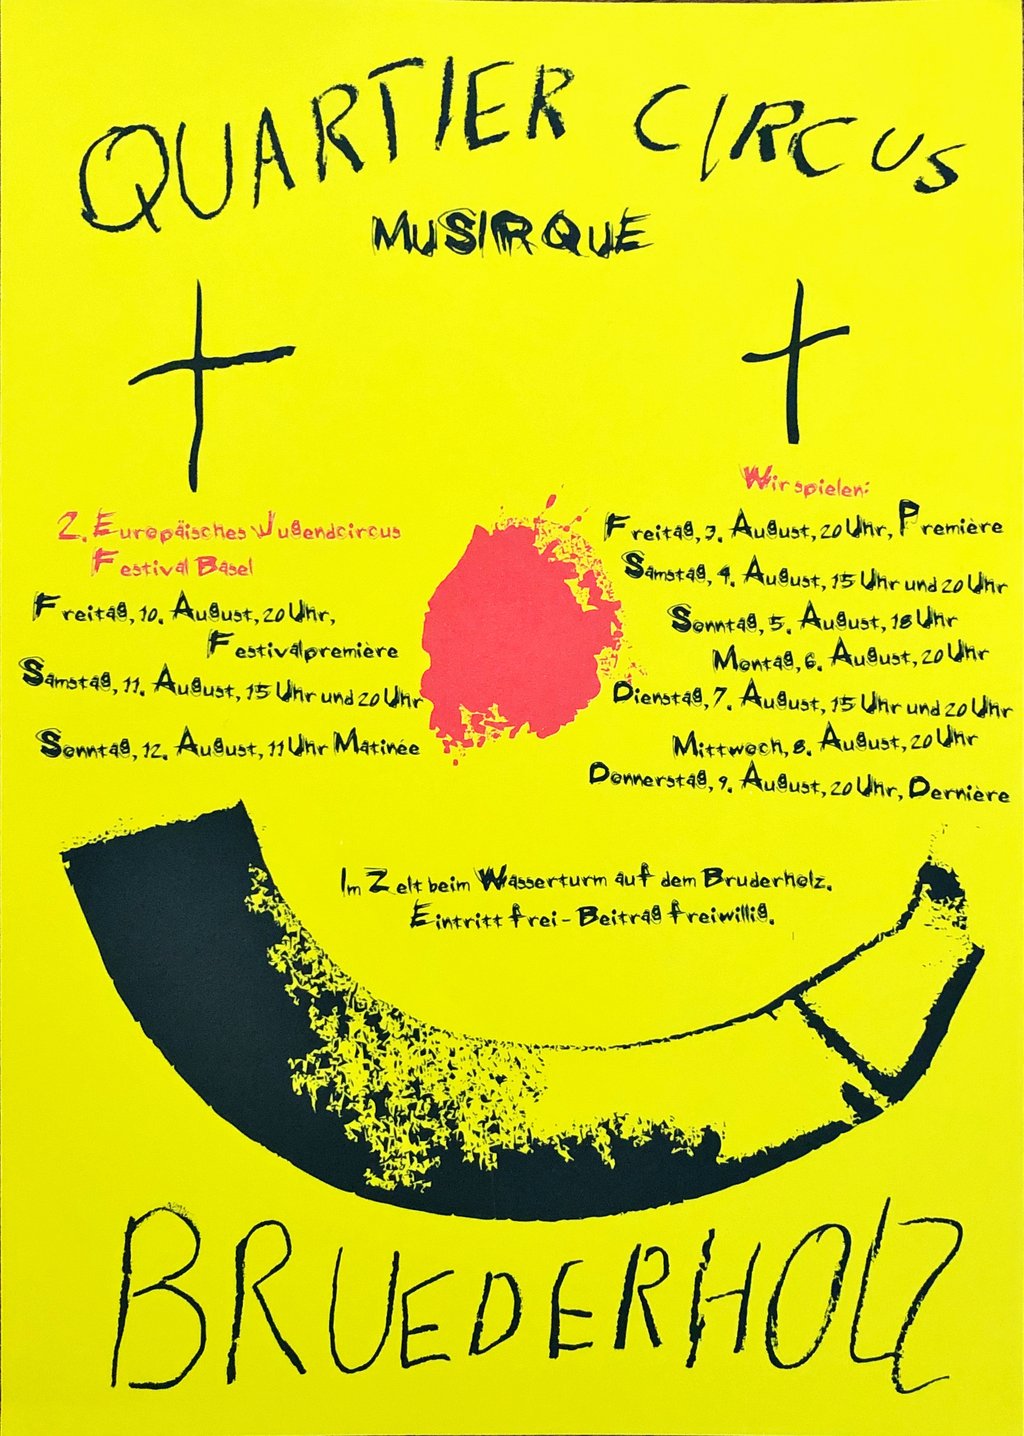 QUARTIER CIRCUS
MUSIRQUE
2. Europäisches Jugendcircus
Festival Basel
Freitag, 10. August, 20 Uhr,
Festivalpremière
Samstag, 11. August, 15 Uhr und 20 Uhr
Sonntag, 12. August, 11 Uhr Matinée
Wir spielen:
Freitag, 3. August, 20 Uhr, Première
Samstag, 4. August, 15 Uhr und 20 Uhr
Sonntag, 5. August, 18 Uhr
Montag, 6. August, 20 Uhr
Dienstag, 7. August, 15 Uhr und 20 Uhr
Mittwoch, 8. August, 20 Uhr
Donnerstag, 9. August, 20 Uhr, Dernière
Im Zelt beim Wasserturm auf dem Bruderholz.
Eintritt frei - Beitrag freiwillig.
BRUEDERHOLZ